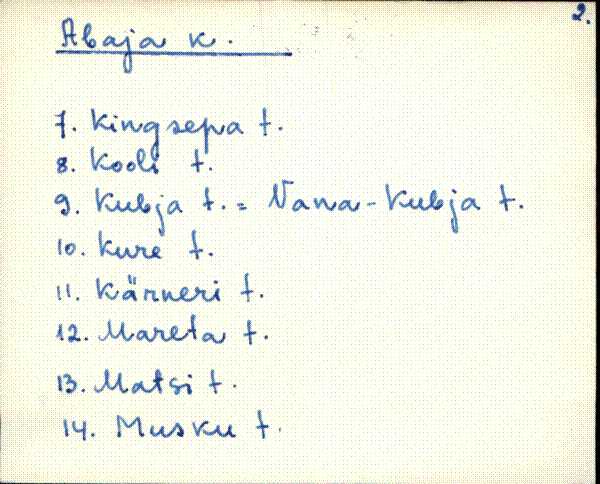 2.
Abaja k.
7. Kingsepa t.
8. Kooli t.
9. Kubja t. = Vana-Kubja t.
10. Kure t.
11. Kärneri t.
12. Mareta t.
13. Matsi t.
14. Musku t.